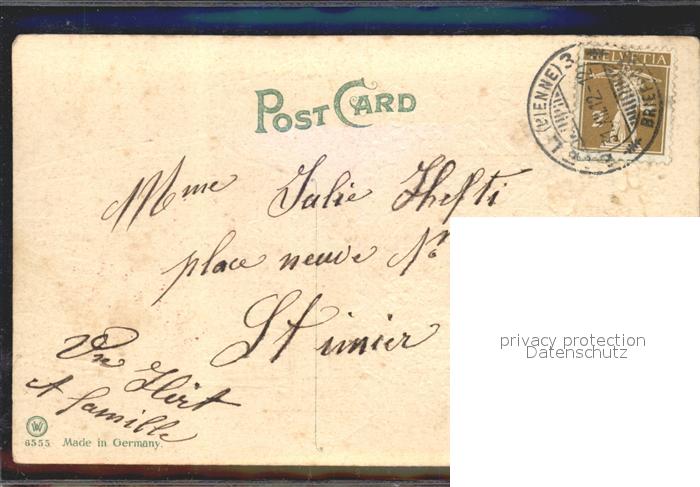 POST CARD
HELVETIA
(BIENNE) 3
BRIEF
Mme Julie Thefti
place neuve No
St imier
Hirt
et famille
6555 Made in Germany.
privacy protection
Datenschutz